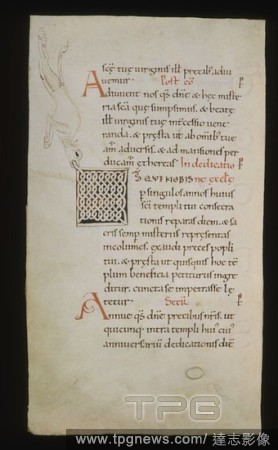 scę tuę virginis ill precib; adiu
vemur. Post cō
Adiuvent nos qs dne & hęc miste
ria scā quę sumpsimus. & beatę
ill virginis tuę intercessio vene
randa. & pręsta ut ab omib; tue
am adversis. & ad mansiones per
ducam ethereas. In dedicatio
DS QUI NOBIS ne ecclę
p singulos annos huius
scī templi tui consecra
tionis reparas diem. & sa
cris semp misteriis repręsentas
incolumes. exaudi preces popli
tui. & pręsta ut quisquis hoc tē
plum beneficia petiturus ingre
ditur. cuncta se impetrasse lę
tetur. Secr̄
Annue qs dne precibus nris. ut
quicunq; intra templi hui; cui;
anniversariū dedicationis diē
TPG
www.tpgnews.com/達志影像